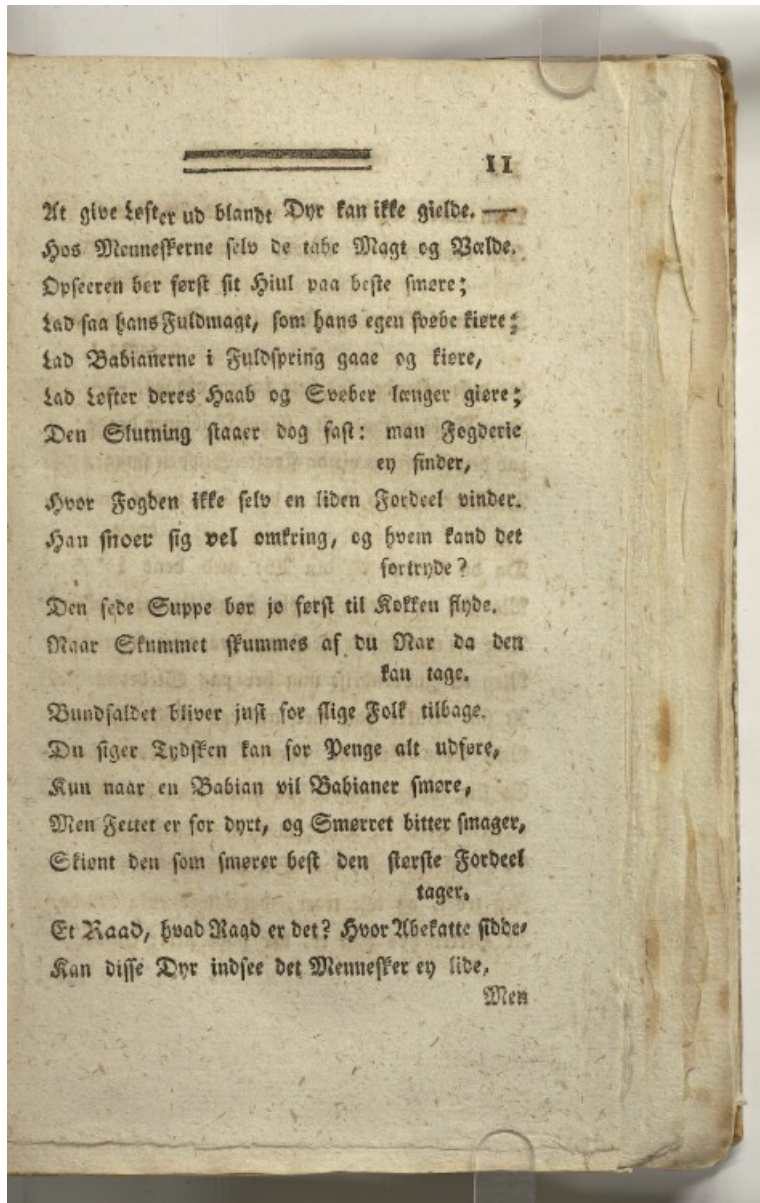 11
At give Løfter ud blandt Dyr kan ikke gielde. —
Hos Menneskerne selv de tabe Magt og Vælde.
Opseeren bør først sit Hiul paa beste smøre;
Lad saa hans Fuldmagt, som hans egen svøbe kiøre;
Lad Babianerne i Fuldspring gaae og kiøre,
Lad Løfter deres Haab og Svøber længer giøre;
Den Slutning staaer dog fast: man Fogderie
ey finder,
Hvor Fogden ikke selv en liden Fordeel vinder.
Han snoer sig vel omkring, og hvem kand det
fortryde?
Den søde Suppe bør jo først til Kokken flyde.
Naar Skummet skummes af du Nar da den
kan tage.
Bundfaldet bliver just for slige Folk tilbage.
Du siger Tydsken kan for Penge alt udføre,
Kun naar en Babian vil Babianer smøre,
Men Fettet er for dyrt, og Smørret bitter smager,
Skiønt den som smører best den største Fordeel
tager.
Et Raad, hvad Raad er det? Hvor Abekatte sidde,
Kan disse Dyr indsee det Mennesker ey lide,
Men